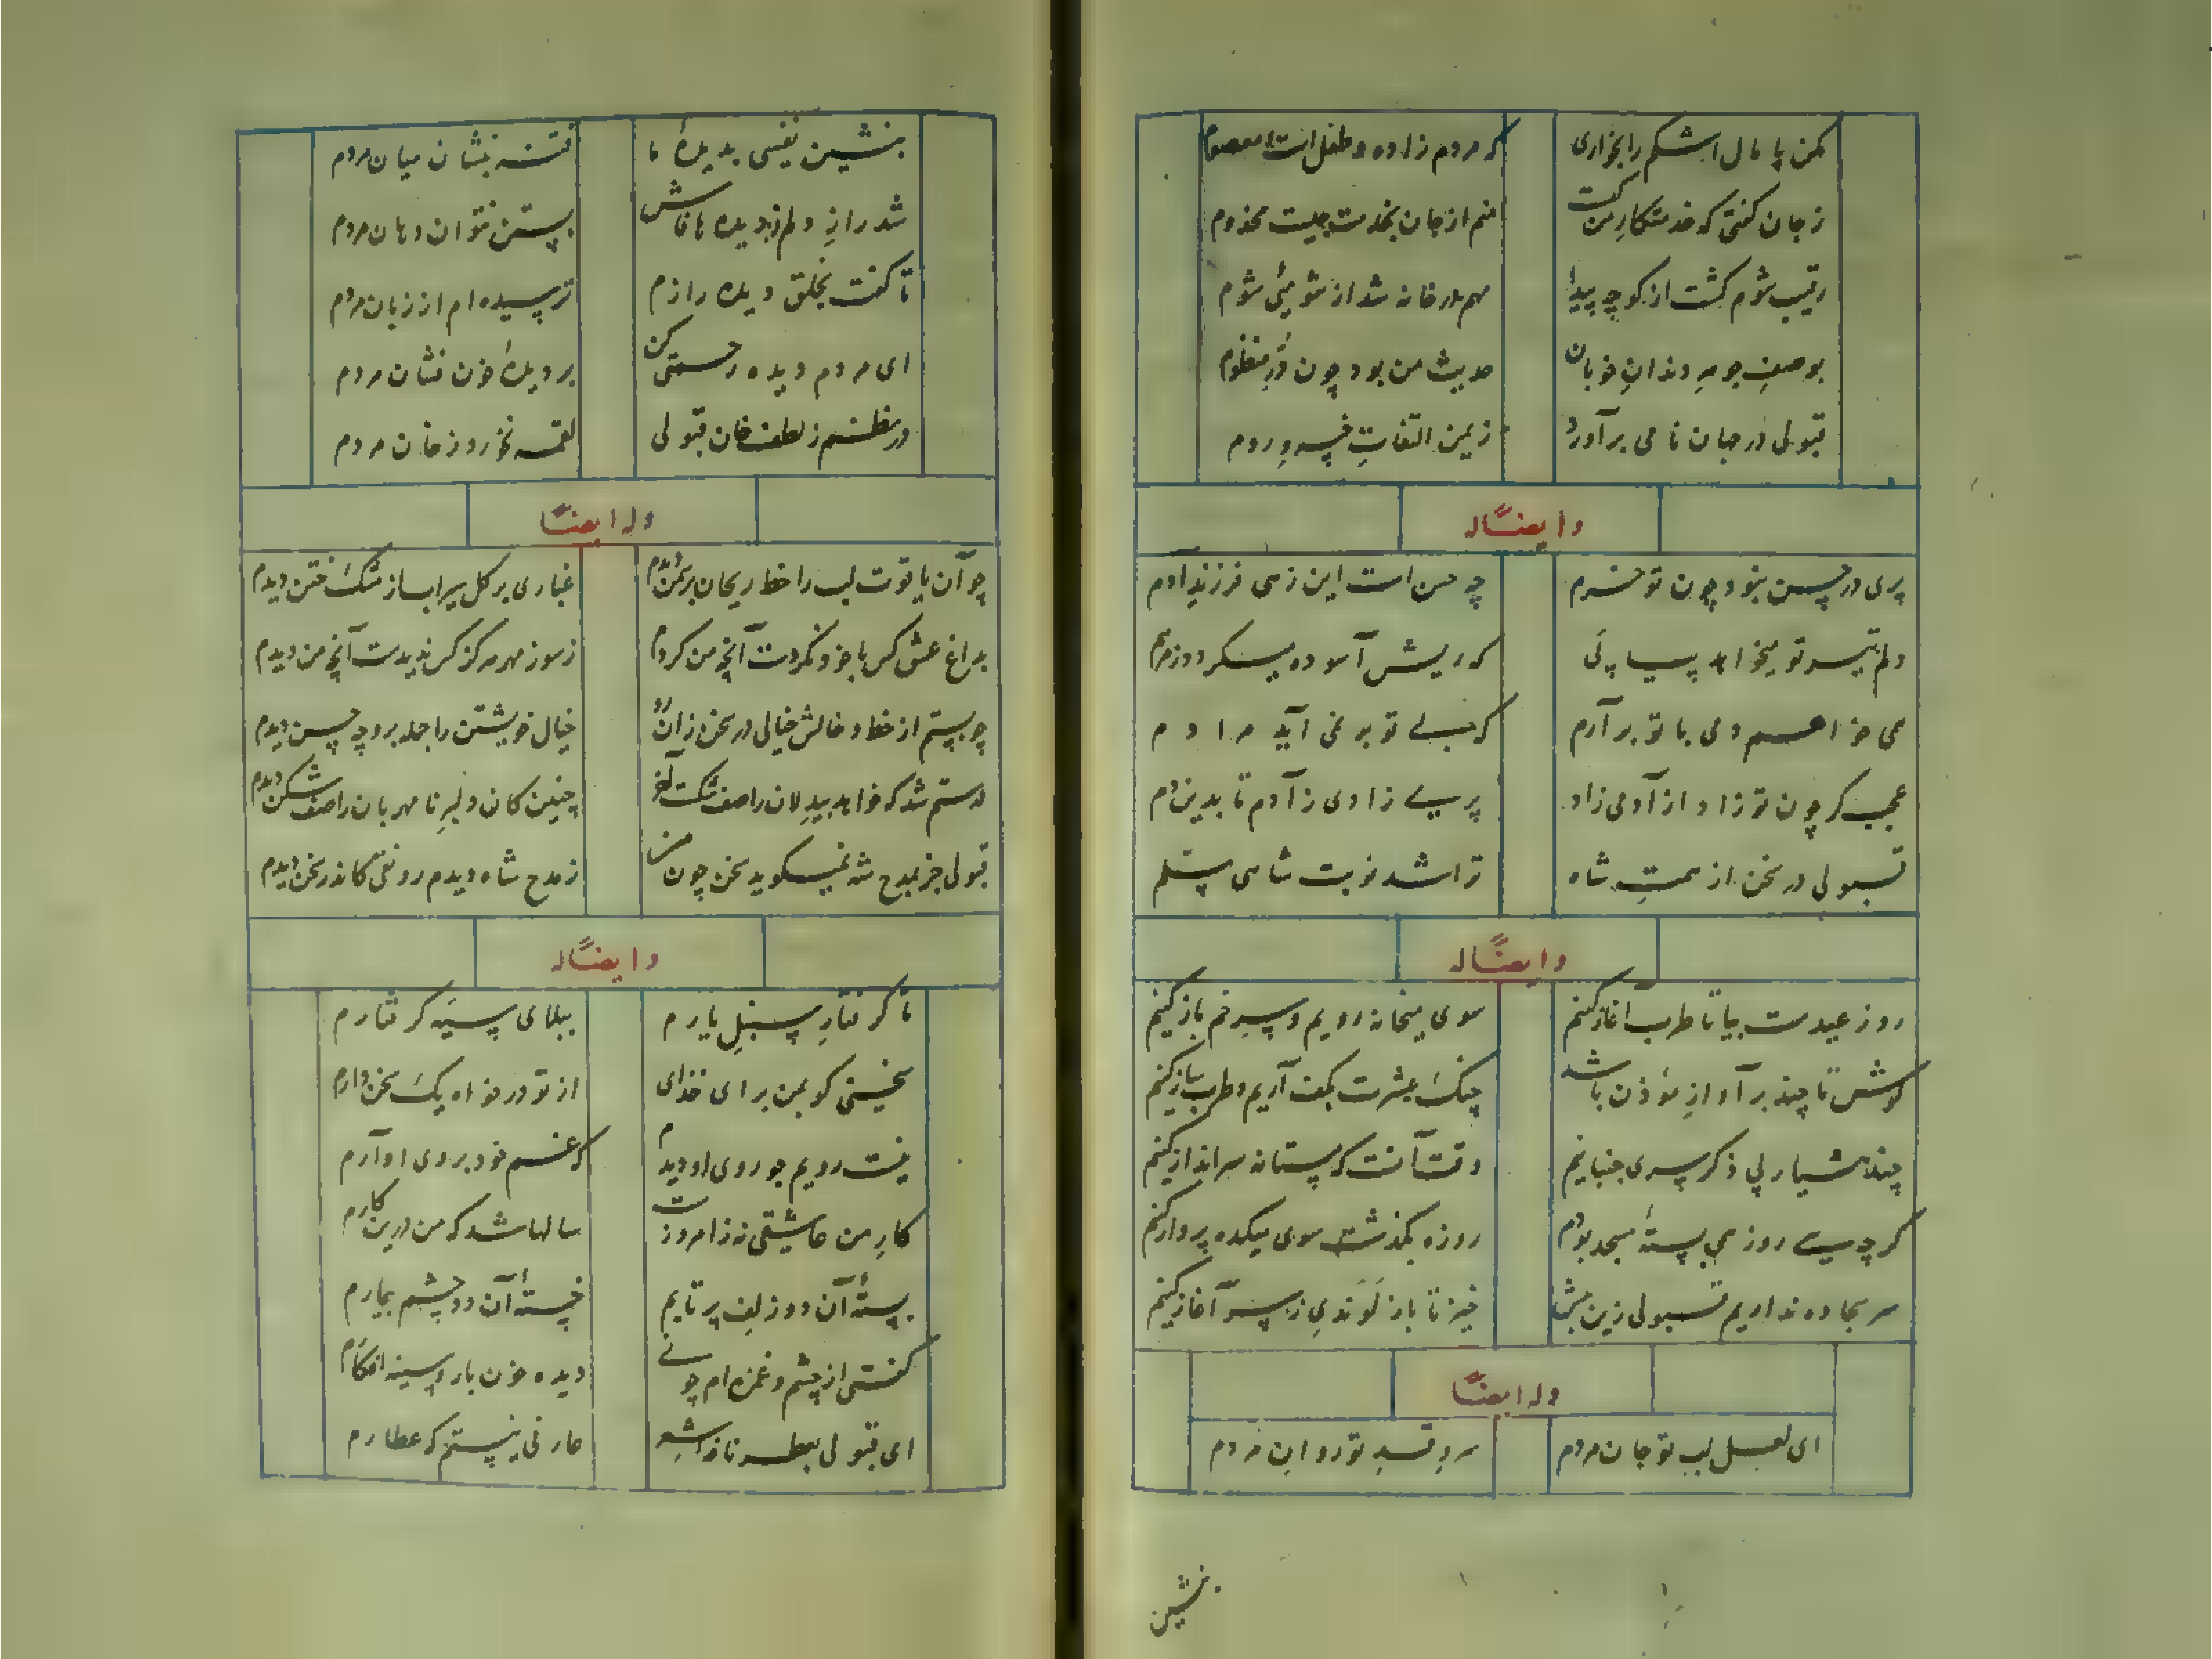 مکن پا مال اشکم را بخواری
که مردم زاده و طفل است معصوم
ز جان گفتی که خدمتکار من کیست
منم از جان بخدمت چیست مخدوم
رقیب شوم گشت از کوچه پیدا
مهم در خانه شد از شومئی شوم
بوصفِ جوهرِ دندانِ خوبان
حدیث من بود چون دُرِ منظوم
قبولی در جهان نامی برآورد
ز یمن التفاتِ خسروِ روم
وایضاً له
پری در حسن نبود چون تو خرم
چه حسن است این زهی فرزندِ آدم
دلم تیر تو میخواهد پیاپی
که ریش آسوده میگردد ز مرهم
همی خواهم دمی با تو برآرم
که بی تو بر نمی آید مرا دم
عجب گر چون تو زاد از آدمی زاد
پری زادی ز آدم تا بدین دم
قبولی در سخن از همتِ شاه
ترا شد نوبت شاهی مسلم
وایضاً له
روز عیدست بیا تا طرب آغاز کنیم
سوی میخانه رویم و سرِ خم باز کنیم
گوش تا چند بر آوازِ مؤذن باشد
چنگ عشرت بکف آریم و طرب ساز کنیم
چند هشیار پی ذکر سری جنبانیم
وقت آنست که مستانه سرانداز کنیم
گرچه سی روز همی بستهٔ مسجد بودیم
روزه بگذشت سوی میکده پرواز کنیم
سر سجاده نداریم قبولی زین بیش
خیز تا باز لَوَندیِ ز سر آغاز کنیم
وله ایضاً
ای لعل لب تو جان مردم
سروِ قدِ تو روانِ مردم
بنشین
بنشین نفسی بدیدهٔ ما
فتنه بنشان میان مردم
شد رازِ دلم ز دیده ها فاش
بستن نتوان دهان مردم
تا گفت بخلق دیده رازم
ترسیده ام از زبان مردم
ای مردم دیده رحمتی کن
بر دیدهٔ خون فشان مردم
در نظم ز لطف خان قبولی
لقمه نخورد ز خان مردم
وله ایضاً
چو آن یاقوت لب را خط ریحان بر سمن دیدم
غباری بر گل سیراب از مشک ختن دیدم
بداغ عشق کس با خود نکردست آنچه من کردم
ز سوز مهر هرگز کس ندیدست آنچه من دیدم
چو بستم از خط و خالش خیالی در سخن زان رو
خیال خویشتن را جمله بر وجه حسن دیدم
درستم شد که خواهد بیدلان را صف شکست آخر
چنین کان دلبرِ نامهربان را صف شکن دیدم
قبولی جز بمدح شه نمیگوید سخن چون من
ز مدح شاه دیدم رونقی کاندر سخن دیدم
وایضاً له
تا گرفتارِ سنبلِ یارم
ببلای سیه گرفتارم
سخنی گو بمن برای خدای
از تو درخواه یک سخن دارم
نیست رویم چو روی او دیدم
که غم خود بروی او آرم
کارِ من عاشقی نه ز امروزست
سالها شد که من درین کارم
بستهٔ آن دو زلف پر تابم
خستهٔ آن دو چشم بیمارم
گفتی از چشم و غمزه ام چونی
دیده خون بار و سینه افکارم
ای قبولی بعطر نافهٔ شعر
عارفی نیستم که عطارم